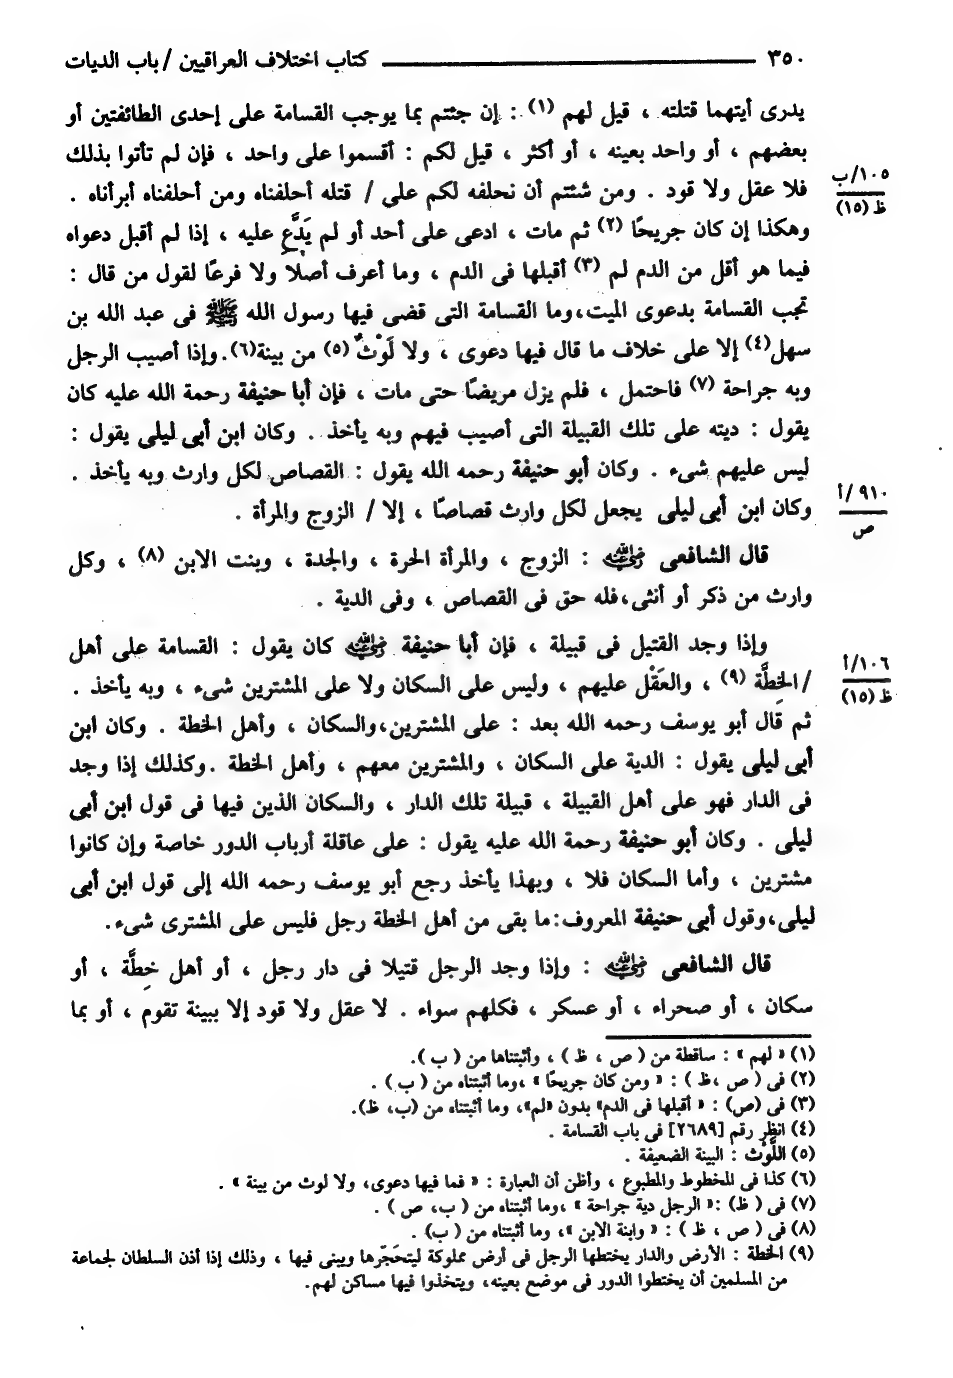 ٣٥٠ ــــــــــــــــــــ كتاب اختلاف العراقيين / باب الديات
يدرى أيتهما قتلته ، قيل لهم (١) : إن جئتم بما يوجب القسامة على إحدى الطائفتين أو
بعضهم ، أو واحد بعينه ، أو أكثر ، قيل لكم : أقسموا على واحد ، فإن لم تأتوا بذلك
١٠٥/ب
ظ (١٥)
فلا عقل ولا قود . ومن شئتم أن نحلفه لكم على / قتله أحلفناه ومن أحلفناه أبرأناه .
وهكذا إن كان جريحًا (٢) ثم مات ، ادعى على أحد أو لم يَدَّعِ عليه ، إذا لم أقبل دعواه
فيما هو أقل من الدم لم (٣) أقبلها فى الدم ، وما أعرف أصلا ولا فرعًا لقول من قال :
تجب القسامة بدعوى الميت،وما القسامة التى قضى فيها رسول الله ﷺ فى عبد الله بن
سهل(٤) إلا على خلاف ما قال فيها دعوى ، ولا لَوْثٌ (٥) من بينة(٦).وإذا أصيب الرجل
وبه جراحة (٧) فاحتمل ، فلم يزل مريضًا حتى مات ، فإن أبا حنيفة رحمة الله عليه كان
يقول : ديته على تلك القبيلة التى أصيب فيهم وبه يأخذ . وكان ابن أبى ليلى يقول :
ليس عليهم شىء . وكان أبو حنيفة رحمه الله يقول : القصاص لكل وارث وبه يأخذ .
٩١٠/أ
ص
وكان ابن أبى ليلى يجعل لكل وارث قصاصًا ، إلا / الزوج والمرأة .
قال الشافعى رضي الله عنه : الزوج ، والمرأة الحرة ، والجدة ، وبنت الابن (٨) ، وكل
وارث من ذكر أو أنثى،فله حق فى القصاص ، وفى الدية .
وإذا وجد القتيل فى قبيلة ، فإن أبا حنيفة رضي الله عنه كان يقول : القسامة على أهل
١٠٦/أ
ظ (١٥)
/الخِطَّة (٩) ، والعَقْل عليهم ، وليس على السكان ولا على المشترين شىء ، وبه يأخذ .
ثم قال أبو يوسف رحمه الله بعد : على المشترين،والسكان ، وأهل الخطة . وكان ابن
أبى ليلى يقول : الدية على السكان ، والمشترين معهم ، وأهل الخطة .وكذلك إذا وجد
فى الدار فهو على أهل القبيلة ، قبيلة تلك الدار ، والسكان الذين فيها فى قول ابن أبى
ليلى . وكان أبو حنيفة رحمة الله عليه يقول : على عاقلة أرباب الدور خاصة وإن كانوا
مشترين ، وأما السكان فلا ، وبهذا يأخذ رجع أبو يوسف رحمه الله إلى قول ابن أبى
ليلى،وقول أبى حنيفة المعروف:ما بقى من أهل الخطة رجل فليس على المشترى شىء.
قال الشافعى رضي الله عنه : وإذا وجد الرجل قتيلا فى دار رجل ، أو أهل خِطَّة ، أو
سكان ، أو صحراء ، أو عسكر ، فكلهم سواء . لا عقل ولا قود إلا ببينة تقوم ، أو بما
(١) « لهم » : ساقطة من ( ص ، ظ ) ، وأثبتناها من ( ب ).
(٢) فى ( ص ،ظ ) : « ومن كان جريحًا » ،وما أثبتناه من ( ب ) .
(٣) فى (ص) : « أقبلها فى الدم» بدون «لم»، وما أثبتناه من (ب، ظ).
(٤) انظر رقم [٢٦٨٩] فى باب القسامة .
(٥) اللَّوْث : البينة الضعيفة .
(٦) كذا فى المخطوط والمطبوع ، وأظن أن العبارة : « فما فيها دعوى، ولا لوث من بينة » .
(٧) فى ( ظ) :« الرجل دية جراحة » ،وما أثبتناه من ( ب، ص ) .
(٨) فى ( ص ، ظ ) : « وابنة الابن »، وما أثبتناه من ( ب) .
(٩) الخطة : الأرض والدار يختطها الرجل فى أرض مملوكة ليتحَجّرها ويبنى فيها ، وذلك إذا أذن السلطان لجماعة
من المسلمين أن يختطوا الدور فى موضع بعينه، ويتخذوا فيها مساكن لهم.